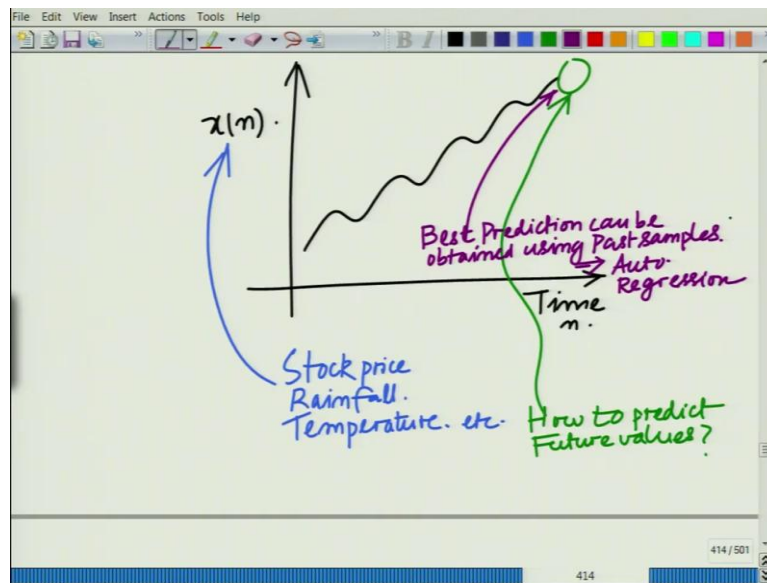 File Edit View Insert Actions Tools Help
B I
x(n).
Best Prediction can be
obtained using Past samples.
⇒ Auto-
Regression
Time
n.
Stock price
Rainfall.
Temperature. etc.
How to predict
Future values?
414 / 501
414